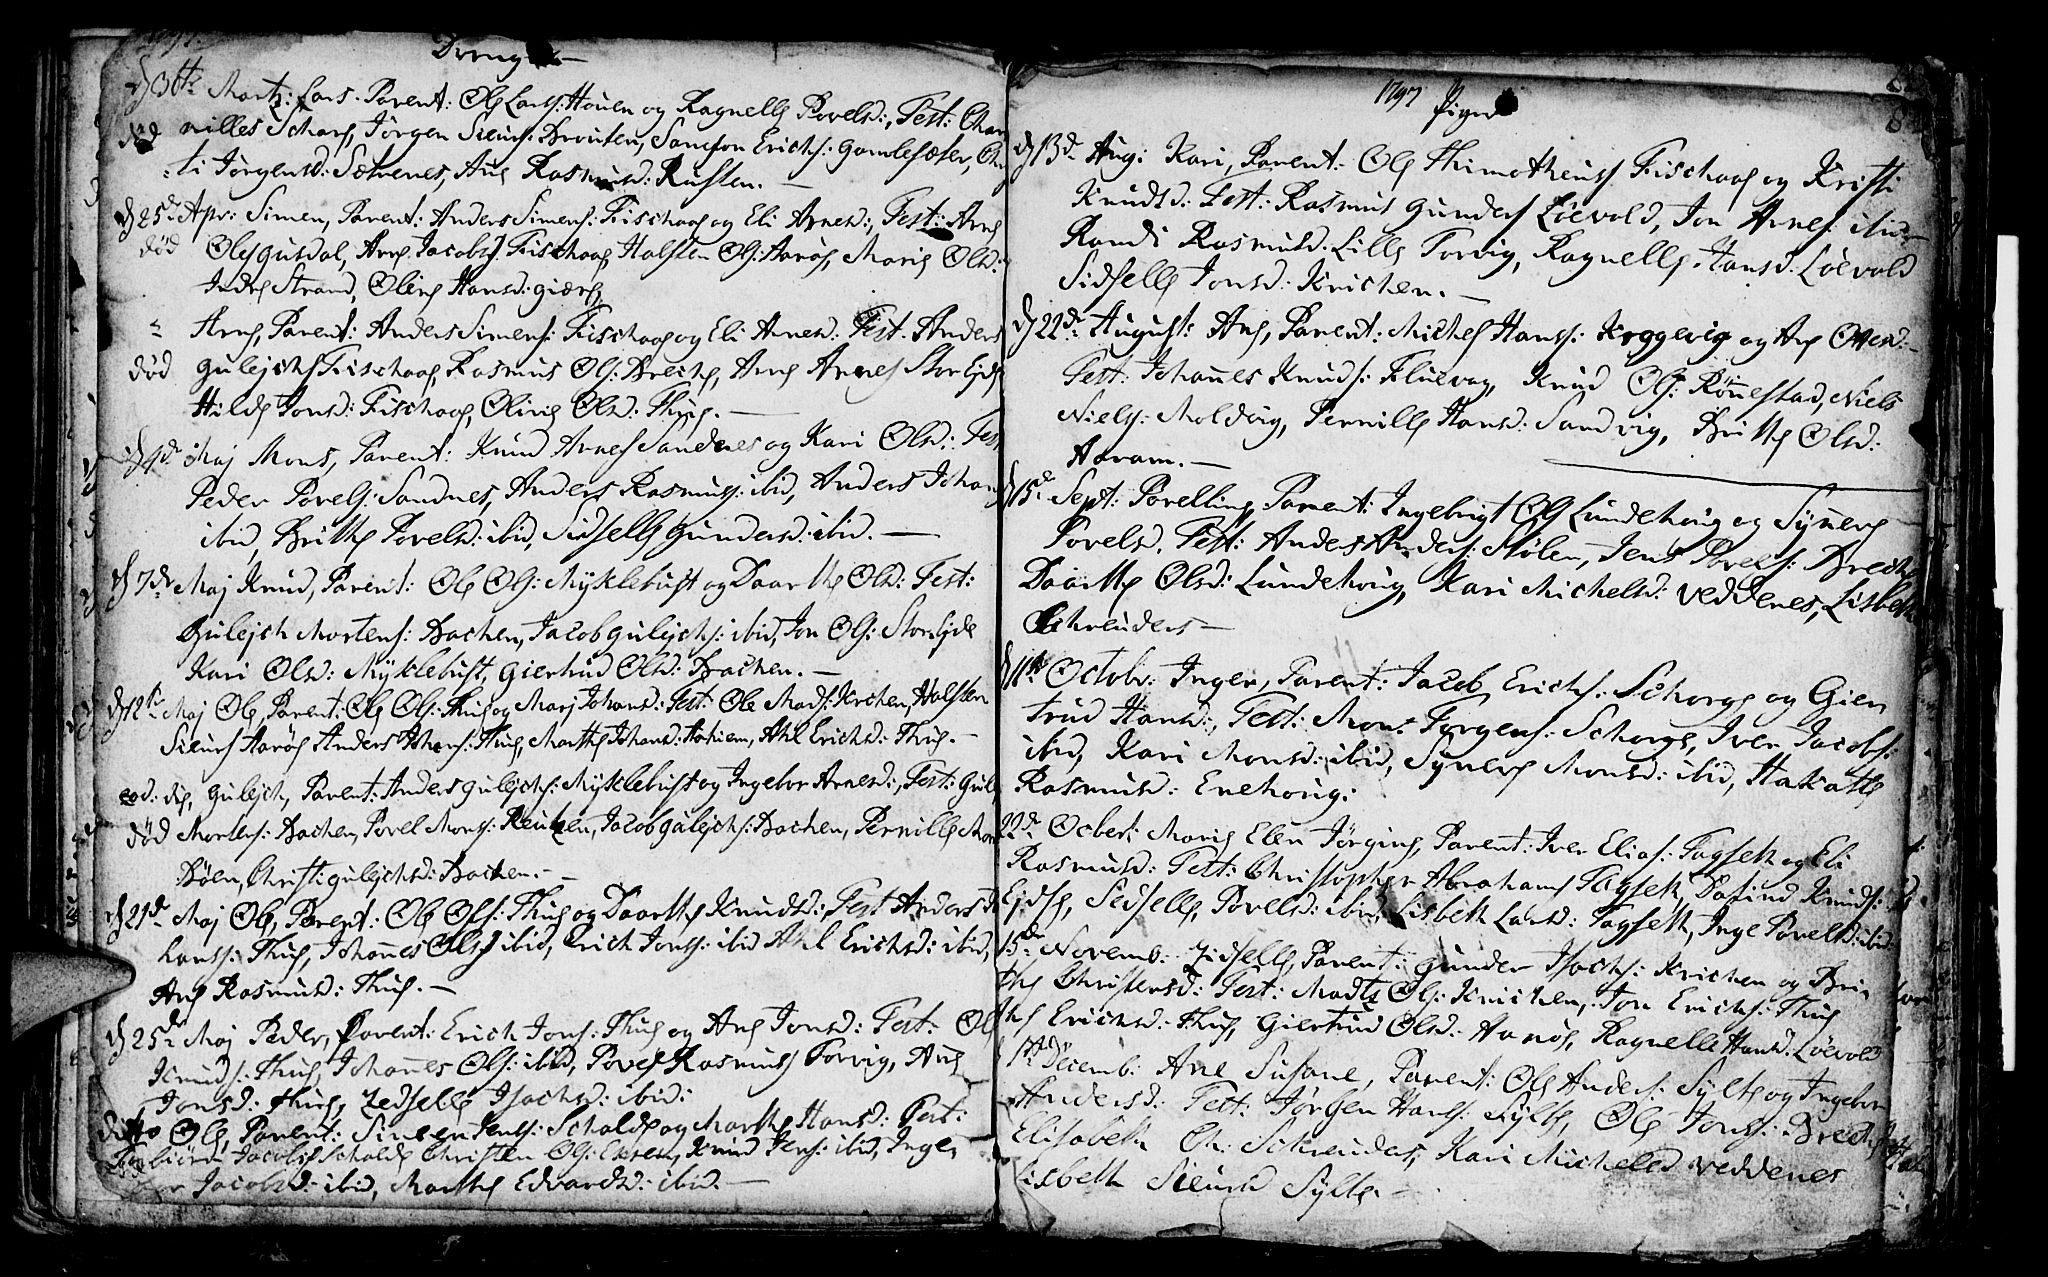 1797.
Drenge
d 30te Martz: Lars. Parent: Ole Larss: Houen og Ragnelle Povelsd:, Test:
død nilles Schars, Jörgen Siurs: Brouten, Samson Erichs: Gamlesæter,
ti Jörgensd: Sætrenes, Ane Rasmusd: Rusten. —
d 25de Apr: Simen, Parent: Anders Simens: Fischaae og Eli Arnesd:, Test: Arne
død Oles Gusdal, Arne Jacobs: Fischaae, Halsten Ols: Harös, Marie Olsd:
Indre Strand, Oline Hansd: Giære,
Arne, Parent: Anders Simens: Fischaae og Eli Arnesd: Test. Anders
død Gulejchs Fischaae, Rasmus Ols: Breche, Arne Arnes Storejde
Hilde Jonsd: Fischaae, Oline Olsd: Thue. —
d 4de Maj Mons, Parent: Knud Arnes Sandnes og Kari Olsd: Test
Peder Povels: Sandnes, Anders Rasmuss: ibid, Anders Johan
ibid, Britthe Povelsd: ibid, Sidselle Gundersd: ibid. —
d 7de Maj Knud, Parent: Ole Ols: Myklebust og Daarthe Olsd: Test:
Gulejch Mortens: Bachen, Jacob Gulejchs: ibid, Jon Ols: Storejde
Kari Olsd: Myklebust, Giertrud Olsd: Bachen. —
d 12te Maj Ole, Parent: Ole Ols: Thue og Marj Johansd: Test: Ole Mads: Krichen, Halsten
Siurs Harös Anders Johans: Thue, Marthe Johansd: Hahiem, Ahl Erichsd: Thue. —
eod: die, Gulejch, Parent: Anders Gulejchs: Myklebust og Ingebor Arnesd:, Test: Gul
død Mortens: Bachen, Povel Mons: Reiten, Jacob Gulejchs: Bachen, Pernille Mon
Böen, Christi Gulejchsd: Bachen. —
d 21de Maj Ole, Parent: Ole Ols: Thue og Daarthe Knudsd: Test Anders
Larss: Thue, Johannes Ols: ibid, Erich Jons: ibid Ahl Erichsd: ibid,
Ane Rasmusd: Thue. —
d 25de Maj Peder, Parent: Erich Jons: Thue og Ane Jonsd: Test: Ole
Knuds: Thue, Johannes Ols: ibid, Povel Rasmuss Torvig, Ane
Jonsd: Thue, Zedselle Isachsd: ibid:
Ditto Ole, Parent: Jens: Scholde og Marthe Hansd: Test:
Jacobs Scholde Christen Ols: Knud Jens: ibid, Inge
Jacobsd: ibid, Marthe Edvardsd: ibid. —
1797 Piger
d 13de Aug: Kari, Parent: Ole Thimotheuss Fischaae og Kristi
Knudsd: Test: Rasmus Gunders Löevold, Jon Arnes: ibid
Randi Rasmusd: Lille Torvig, Ragnelle Hansd: Löevold
Sidselle Jonsd: Krichen. —
d 22de August: Ane, Parent: Michel Hanss: Roggevig og Ane Ottesd:
Test: Johannes Knuds: Fluevog, Knud Ols: Rönnestad, Niels
Niels: Moldvig, Pernille Hansd: Sandvig, Britthe Olsd:
Haram. —
d 15de Sept: Povelline, Parent: Ingebrigt Ols Lundehoug og Synnerve
Povelsd. Test: Anders Anders: Stölen, Jens Povels: Breche
Daarthe Olsd: Lundehoug, Kari Michelsd: Veddenes, Lisbeth
Schreuders —
d 11te Octobr: Inger, Parent: Jacob Erichs: Schorge og Gier
trud Hansd:, Test: Mons Jörgens: Schorge, Iver Jacobs:
ibid, Kari Monsd: ibid, Synneve Monsd: ibid, Hakatte
Rasmusd: Enehoug:
22de Octber: Marie Elen Jörgine, Parent: Iver Elias: Tagseth og Eli
Rasmusd: Test: Christopher Abrahams Tagseth, Knuds:
Ejdse, Sedselle Povelsd: ibid, Lisbeth Larsd: Tagseth, Inge Povelsd: ibid.
15de Novemb: Zidselle, Parent: Gunder Isachs: Krichen og Brit
the Christensd: Test: Madts Ols: Krichen, Jon Erichs: Thue
Erichsd: Thue, Giertrud Olsd: Harös, Ragnelle Hansd: Löevold
17de Decemb: Ane Susane, Parent: Ole Anders: Sylte og Ingebor
Andersd: Test: Jörgen Hans: Sylte, Ole Jons: Breche
Elisabeth Ch: Schreuders, Kari Michelsd Veddenes
Lisbeth Siursd Sylte. —